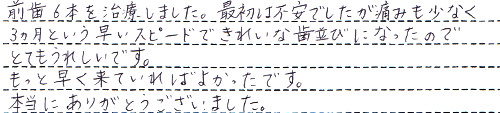 前歯6本を治療しました。最初は不安でしたが痛みも少なく
3ヵ月という早いスピードできれいな歯並びになったので
とてもうれしいです。
もっと早く来ていればよかったです。
本当にありがとうございました。